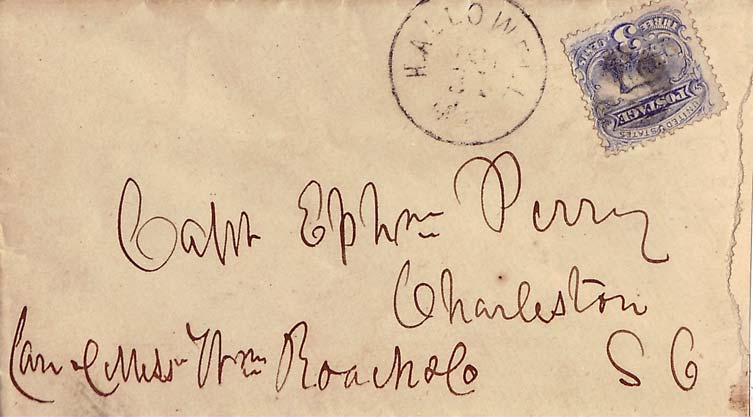 HALLOWELL
THREE 3 CENTS
POSTAGE
UNITED STATES
Capt Ephm Perry
Charleston
Care Messrs Wm Roach & Co S C